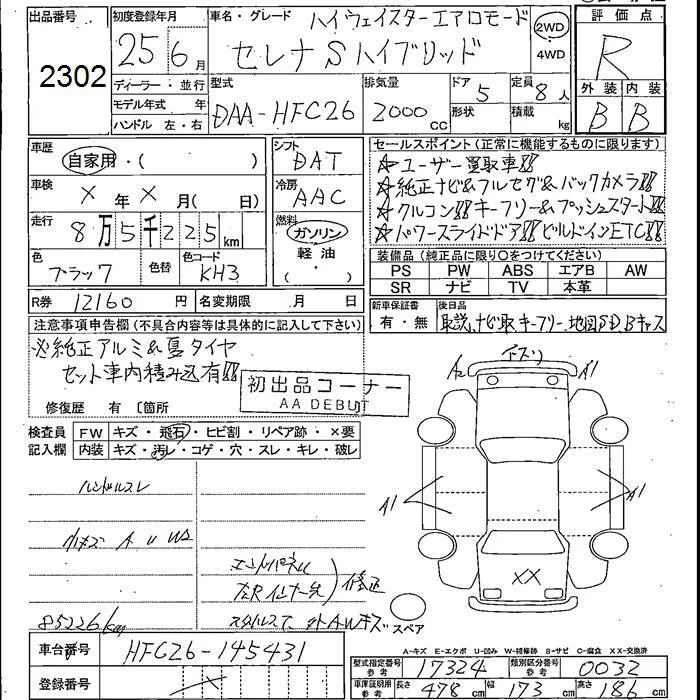 出品番号
2302
初度登録年月
25 6月
ディーラー・並行
モデル年式 年
ハンドル 左・右
車名・グレード
ハイウェイスターエアロモード
セレナ S ハイブリッド
2WD
4WD
評価点
R
外装 内装
B B
型式
DAA-HFC26
排気量
2000 cc
ドア 5
形状
定員 8人
積載 kg
車歴
自家用・( )
車検
× 年 × 月( 日)
走行
8万5千225km
色
ブラック
色替
色コード
KH3
シフト
DAT
冷房
AAC
燃料
ガソリン
軽油
( )
R券 12160 円 名変期限 月 日
セールスポイント(正常に機能するものに限ります)
☆ユーザー買取車!!
☆純正ナビ&フルセグ&バックカメラ!!
☆クルコン!!キーフリー&プッシュスタート!!
☆パワースライドドア!!ビルドインETC!!
装備品(純正品に限り○をつけてください)
PS PW ABS エアB AW
SR ナビ TV 本革
新車保証書
有・無
後日品
取説、ナビ取、キーフリー、地図SD、Bキャス
注意事項申告欄(不具合内容等は具体的に記入して下さい)
※純正アルミ&夏タイヤ
セット車内積み込有!!
初出品コーナー
AA DEBUT
修復歴 有 〔箇所
検査員
記入欄
FW キズ・飛石・ヒビ割・リペア跡・×要
内装 キズ・汚レ・コゲ・穴・スレ・キレ・破レ
ハンドルスレ
小キズ A U W2
エンドパネル
左Rインナー先
修正
85226km
外AWキズ
A2 A1
A1 A1
XX
スペア
A-キズ E-エクボ U-凹み W-補修跡 S-サビ C-腐食 XX-交換済
車台番号 HFC26-145431
登録番号
型式指定番号
参考
17324
類別区分番号
参考
0032
車庫証明用
参考
長さ 478 cm 幅 173 cm 高さ 186 cm